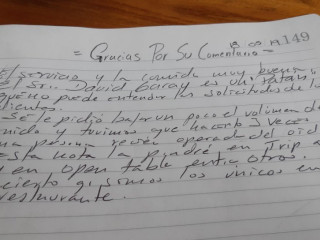 149
= Gracias Por Su Comentario =
El servicio y la comida muy buena
El Sr. David Garay es un
puede entender las solicitudes de los
clientes.
Se le pidió bajar un poco el volumen de
y tuvimos que hacerlo 3 veces
una persona recien operada del oido
Esta nota la pondré en Trip a
y en open table entre otros.
si somos los unicos en
restaurante.